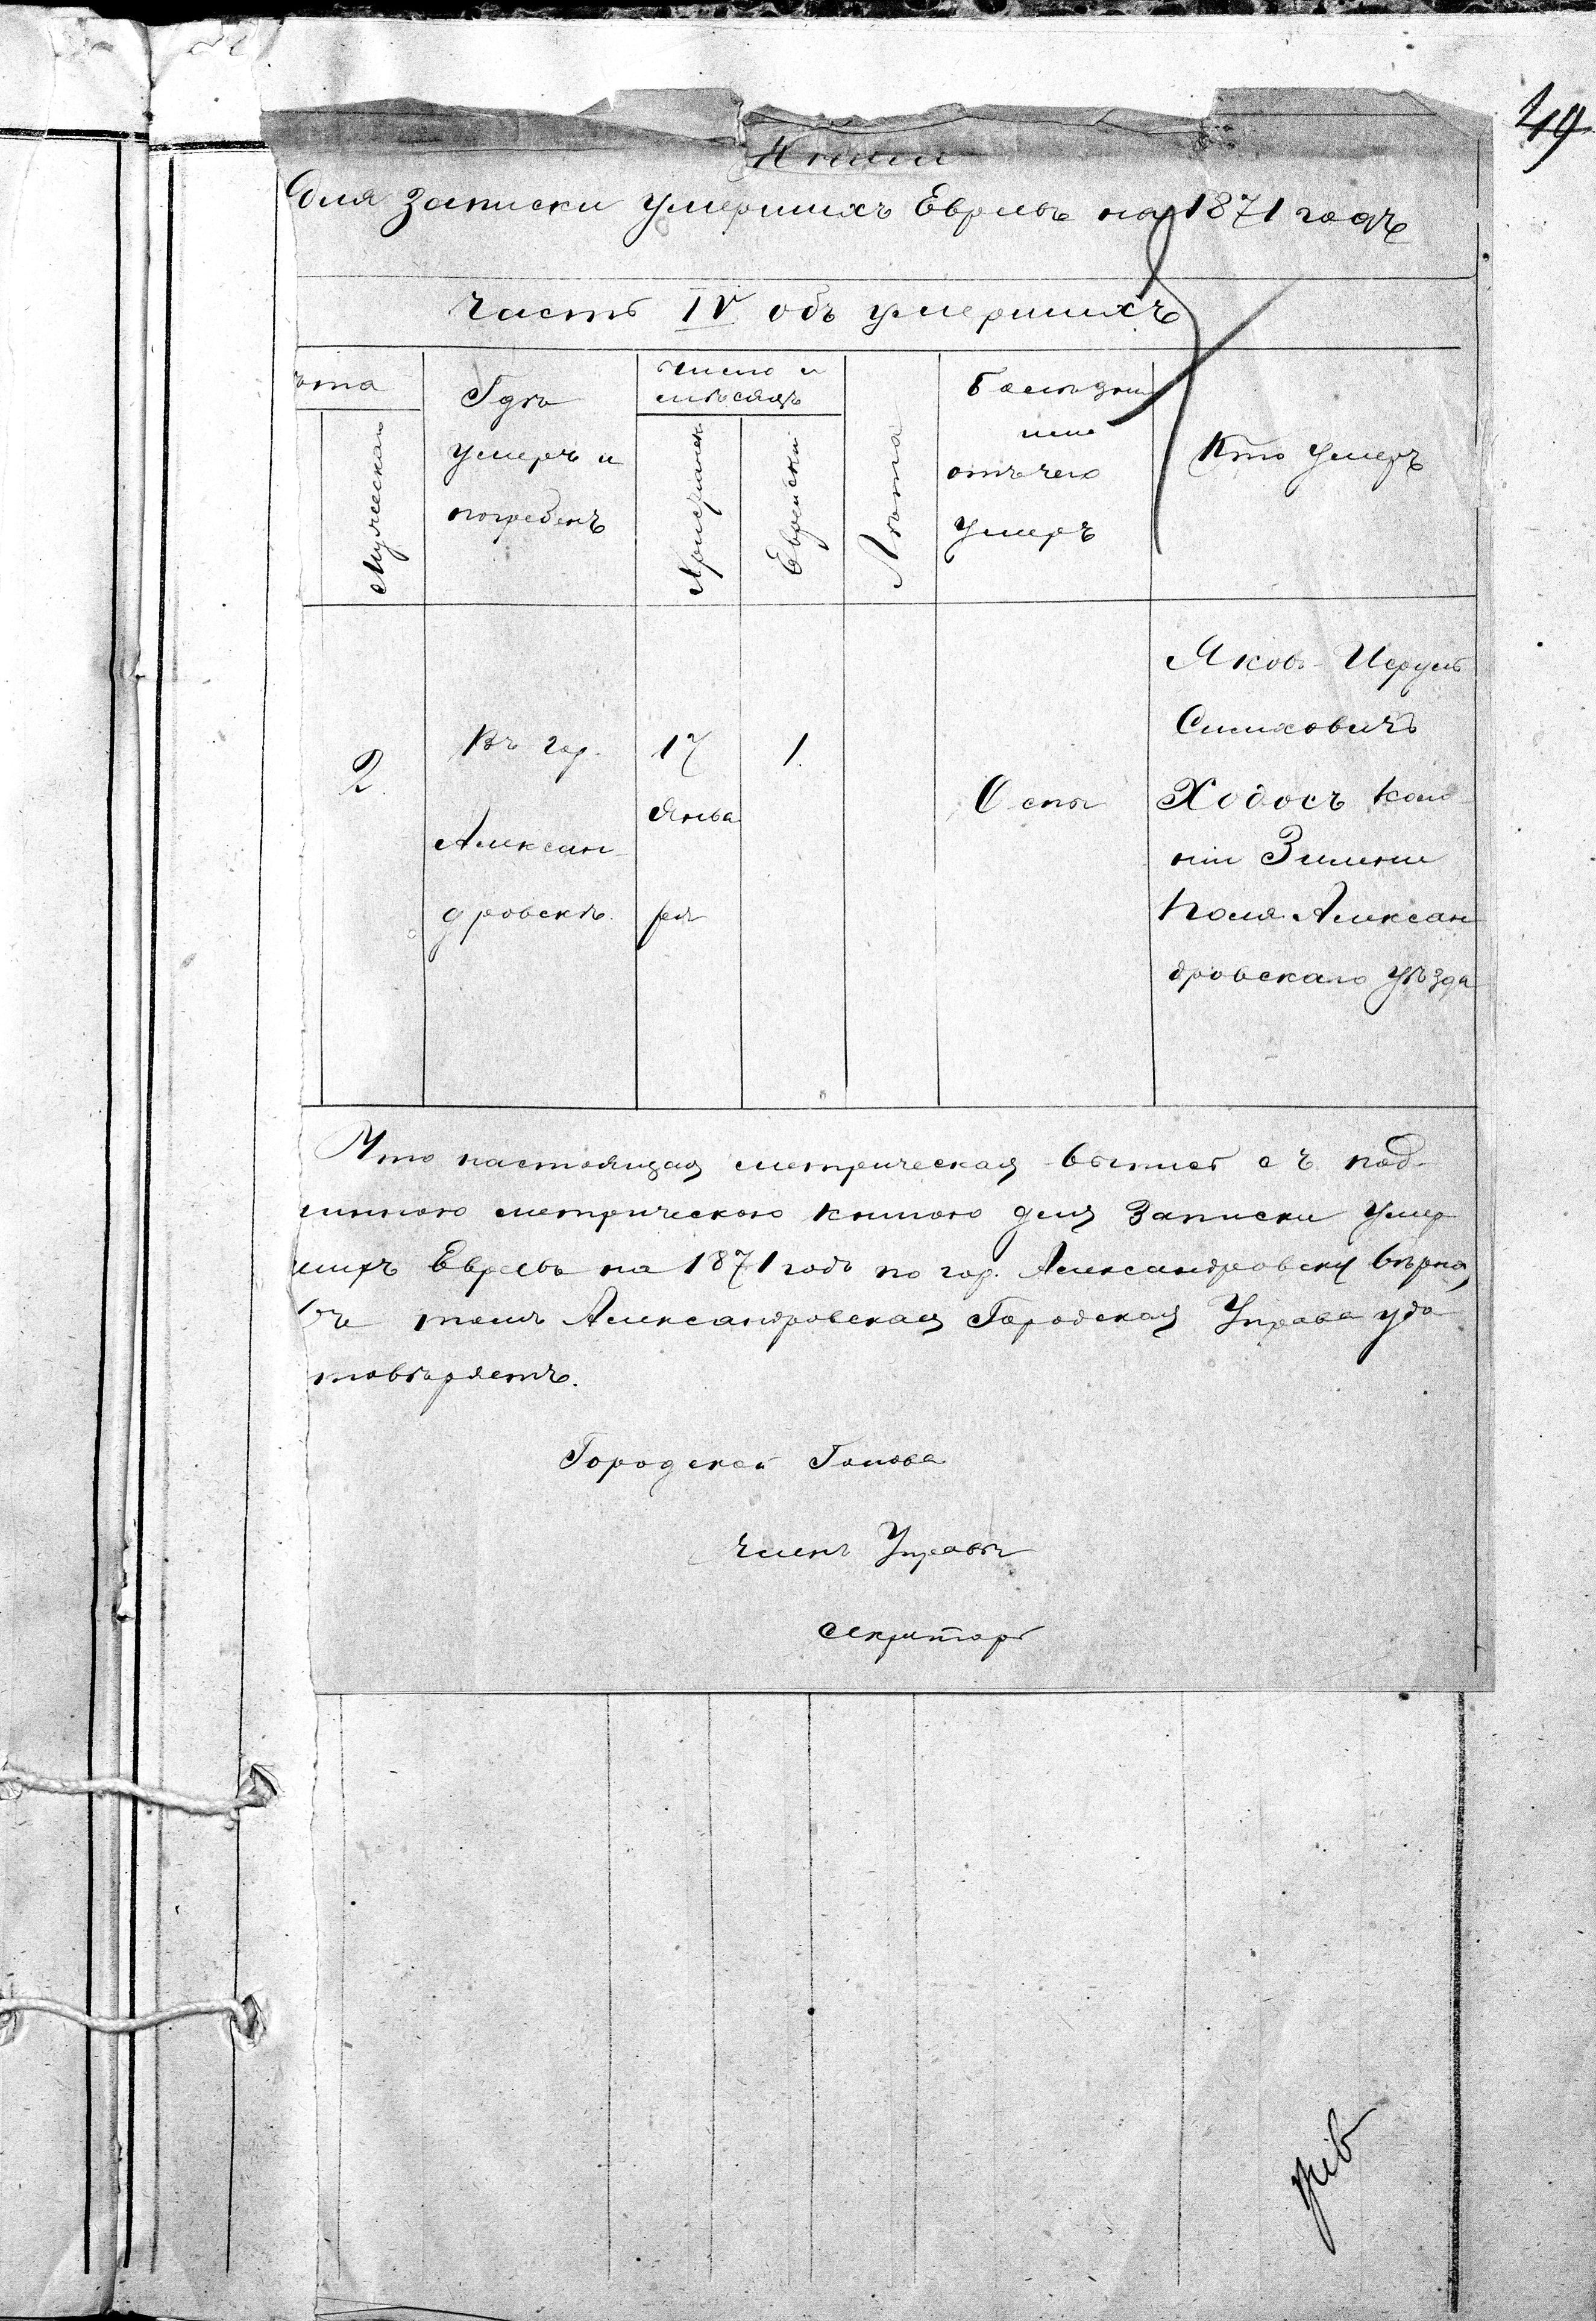 49
Книги
Для записки умершихъ Евреевъ на 1871 годъ
Часть IV объ умершихъ
ѣта
Мужескаго
Гдѣ
умеръ и
погребенъ
Число и
мѣсяцъ
Христіанск
Еврейскій
Лѣта
Болѣзнь
или
отъ чего
умеръ
Кто умеръ
2.
Въ гор.
Алексан
дровскѣ.
17
Янва
ря
1.
Оспы
Яковъ-Исруль
Симховичъ
Ходосъ Коло
ніи Зеленое
Поля Алексан
дровскаго уѣзда
Что настоящая метрическая выпись съ под-
линною метрическою книгою для записки умер
шихъ Евреевъ на 1871 годъ по гор. Александровску вѣрна,
въ томъ Александровская Городская Управа удо
товѣряетъ.
Городской Голова
Членъ Управы
Секретарь